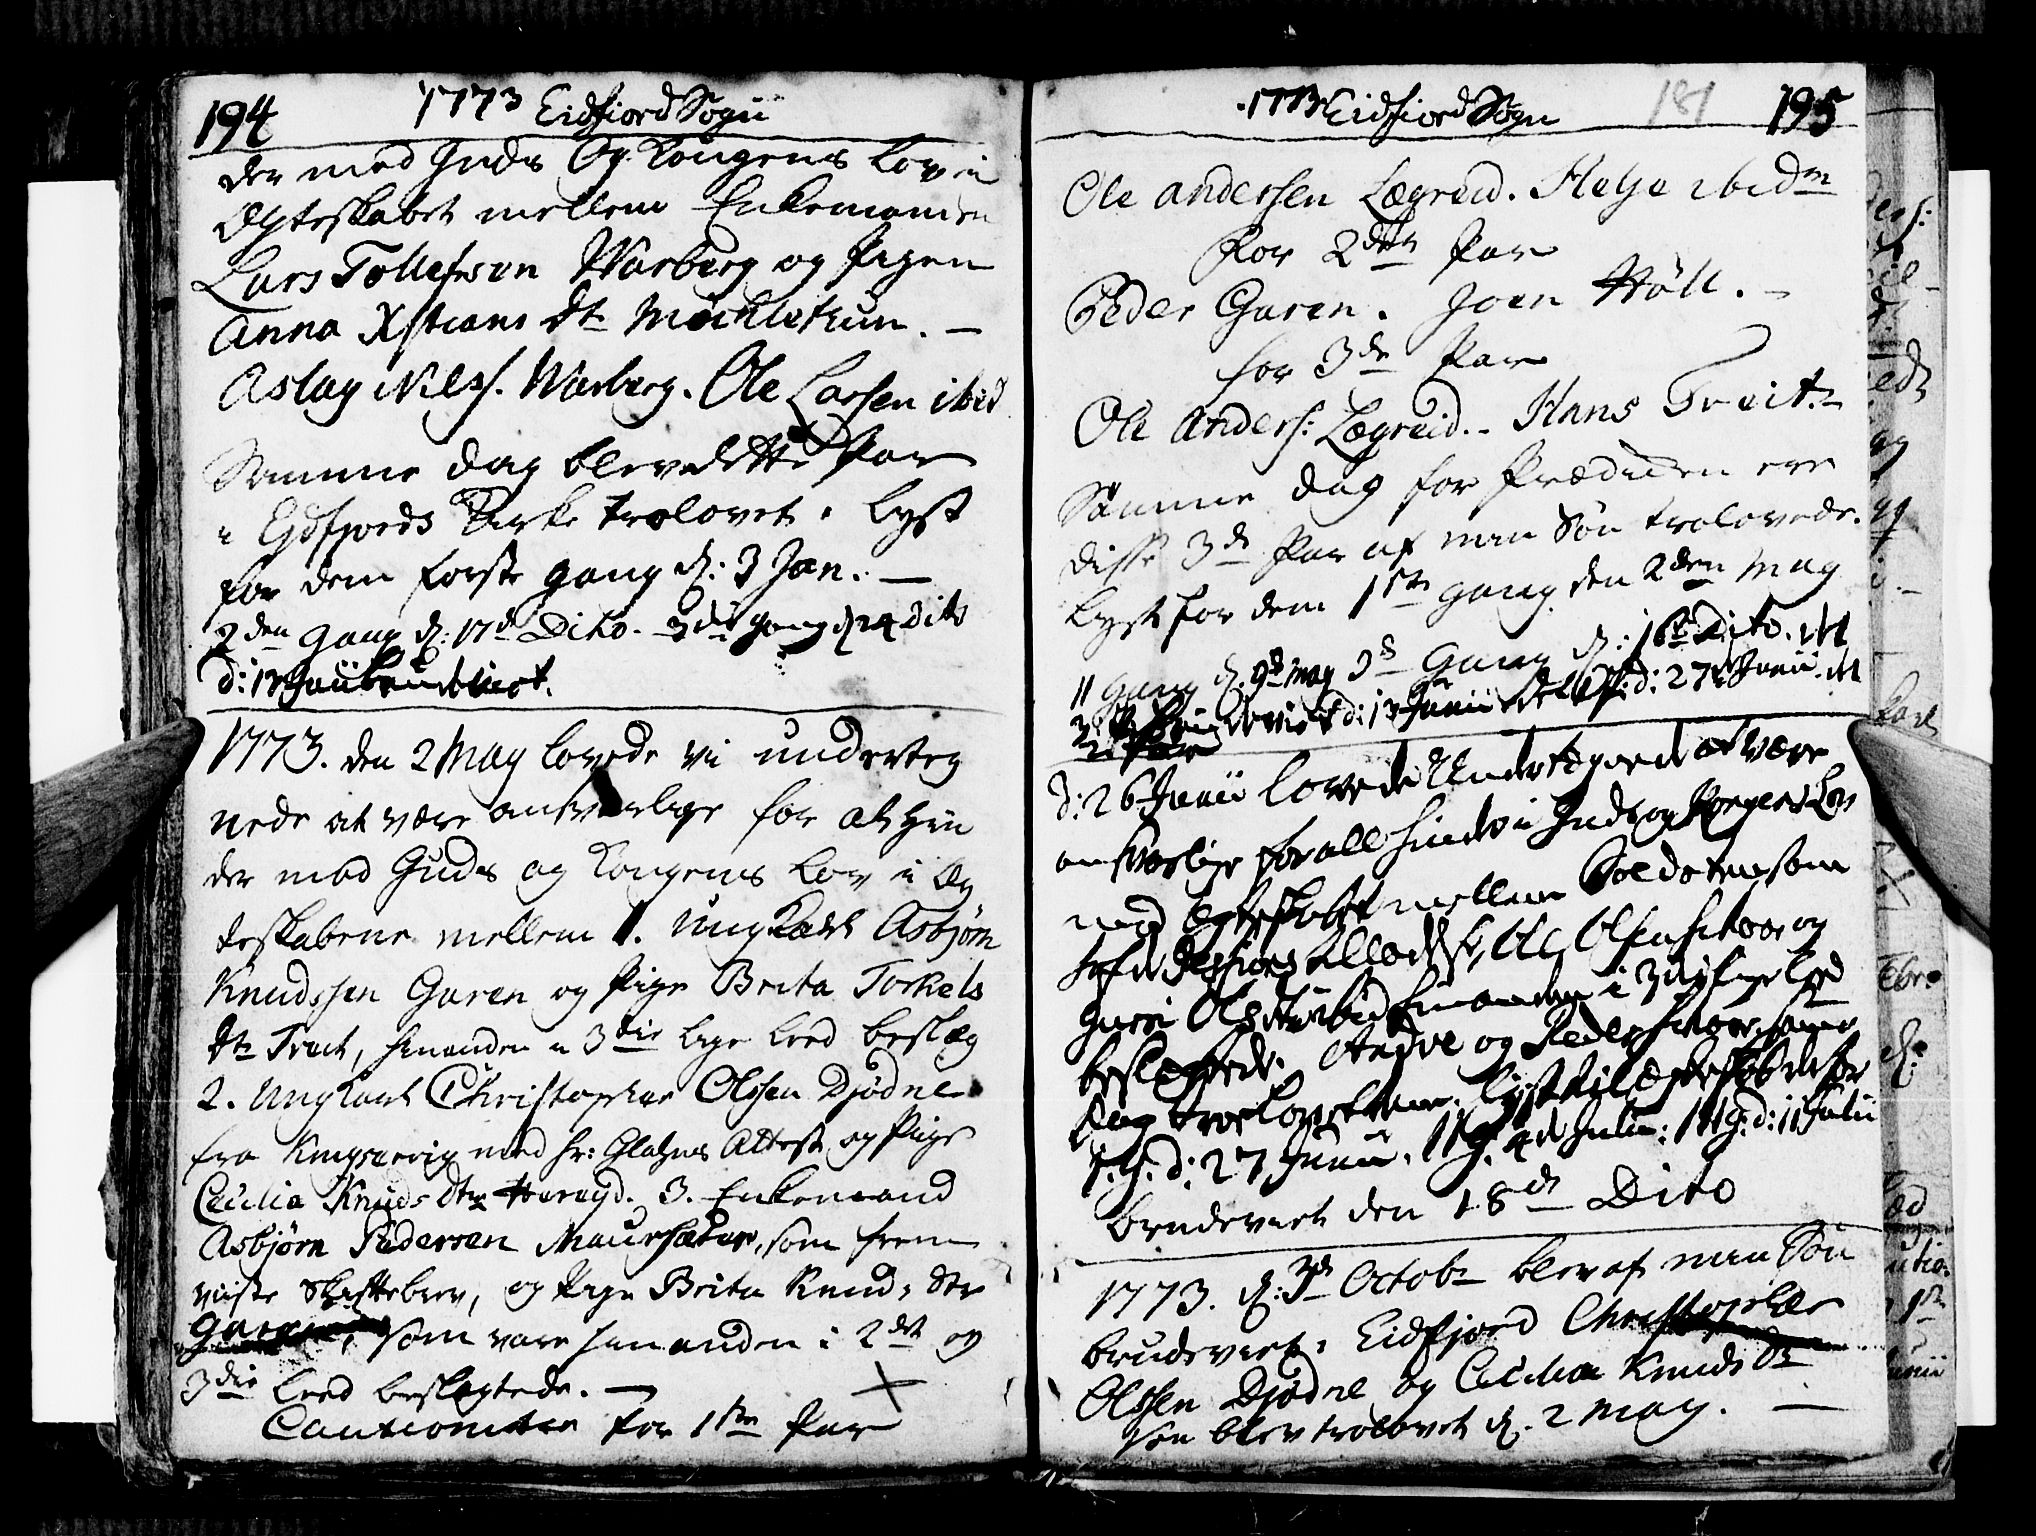 194
1773 Eidfiord Sogn
der med Guds Og Kongens Lov i
Ægteskabet mellem Enkemanden
Lars Tollefsen Warberg og Pigen
Anna Xstians dtr Möcklethun. –
Aslag Nilss. Warberg. Ole Larsen ibid
Samme dag blev dette Par
i Ejdfjords Kirke trolovet. Lyst
for dem forste gang d: 3 Jan. –
2den Gang d: 17d Dito. 3die gang d 24 Dito
d: 13 Junii
1773. den 2 May lovede vi underteg
nede at være ansvarlige for at hin
der med Guds og Kongens Lov i Æg
teskabene mellem 1. Ungkarl Asbjörn
Knudssen Garen og Pige Brita Torkels
dtr Treit, hinanden i 3die lige Leed beslæg
2. Ungkarl Christopher Olssen Djödne
fra Kingservig med Hr: Attest og Pige
Cecilia Knuds dtr 3. Enkemand
Asbjörn Pedersen Maursæter, som frem
viste Skiftebrev, og Pige Brita Knuds dtr
Garen, som vare hinanden i 2det og
3die Leed beslægtede. –
Cautionister for 1ste Par
1773 Eidfiord Sogn
181
195
Ole Anderssen Lægreid. Helje ibidm
For 2det Par
Peder Garen. Joen Höll. –
for 3die Par
Ole Anderss: Lægreid. – Hans Treit. –
Samme dag for Prædiken ere
disse 3de Par af min Sön trolovede.
Lyst for dem 1ste gang den 2den May
II gang d. 9de May 3de Gang d: 16de Dito. det
d: 13 Junii d: 27 Junii. det
2: Par
d: 26 Junii lovede Undertegnede at være
ansvarlige for all hinder i Guds og Kongens Lov
med Egteskabet mellem Soldaten som
Ole Olsen og
Guri Ols hinanden i 3die lige Led
beslegtede. og Peder samme
Dag trolovet
1. G. d: 27 Junii. II G. 4de Julii: III G: d: 11 Julii
brudeviet den 18de Dito
1773. d: 3de Octobr blev af min Sön
brudeviet i Eidfjord Christopher
Olssen Djödne og Cecilia Knuds dr
som blev trolovet d. 2 May. –